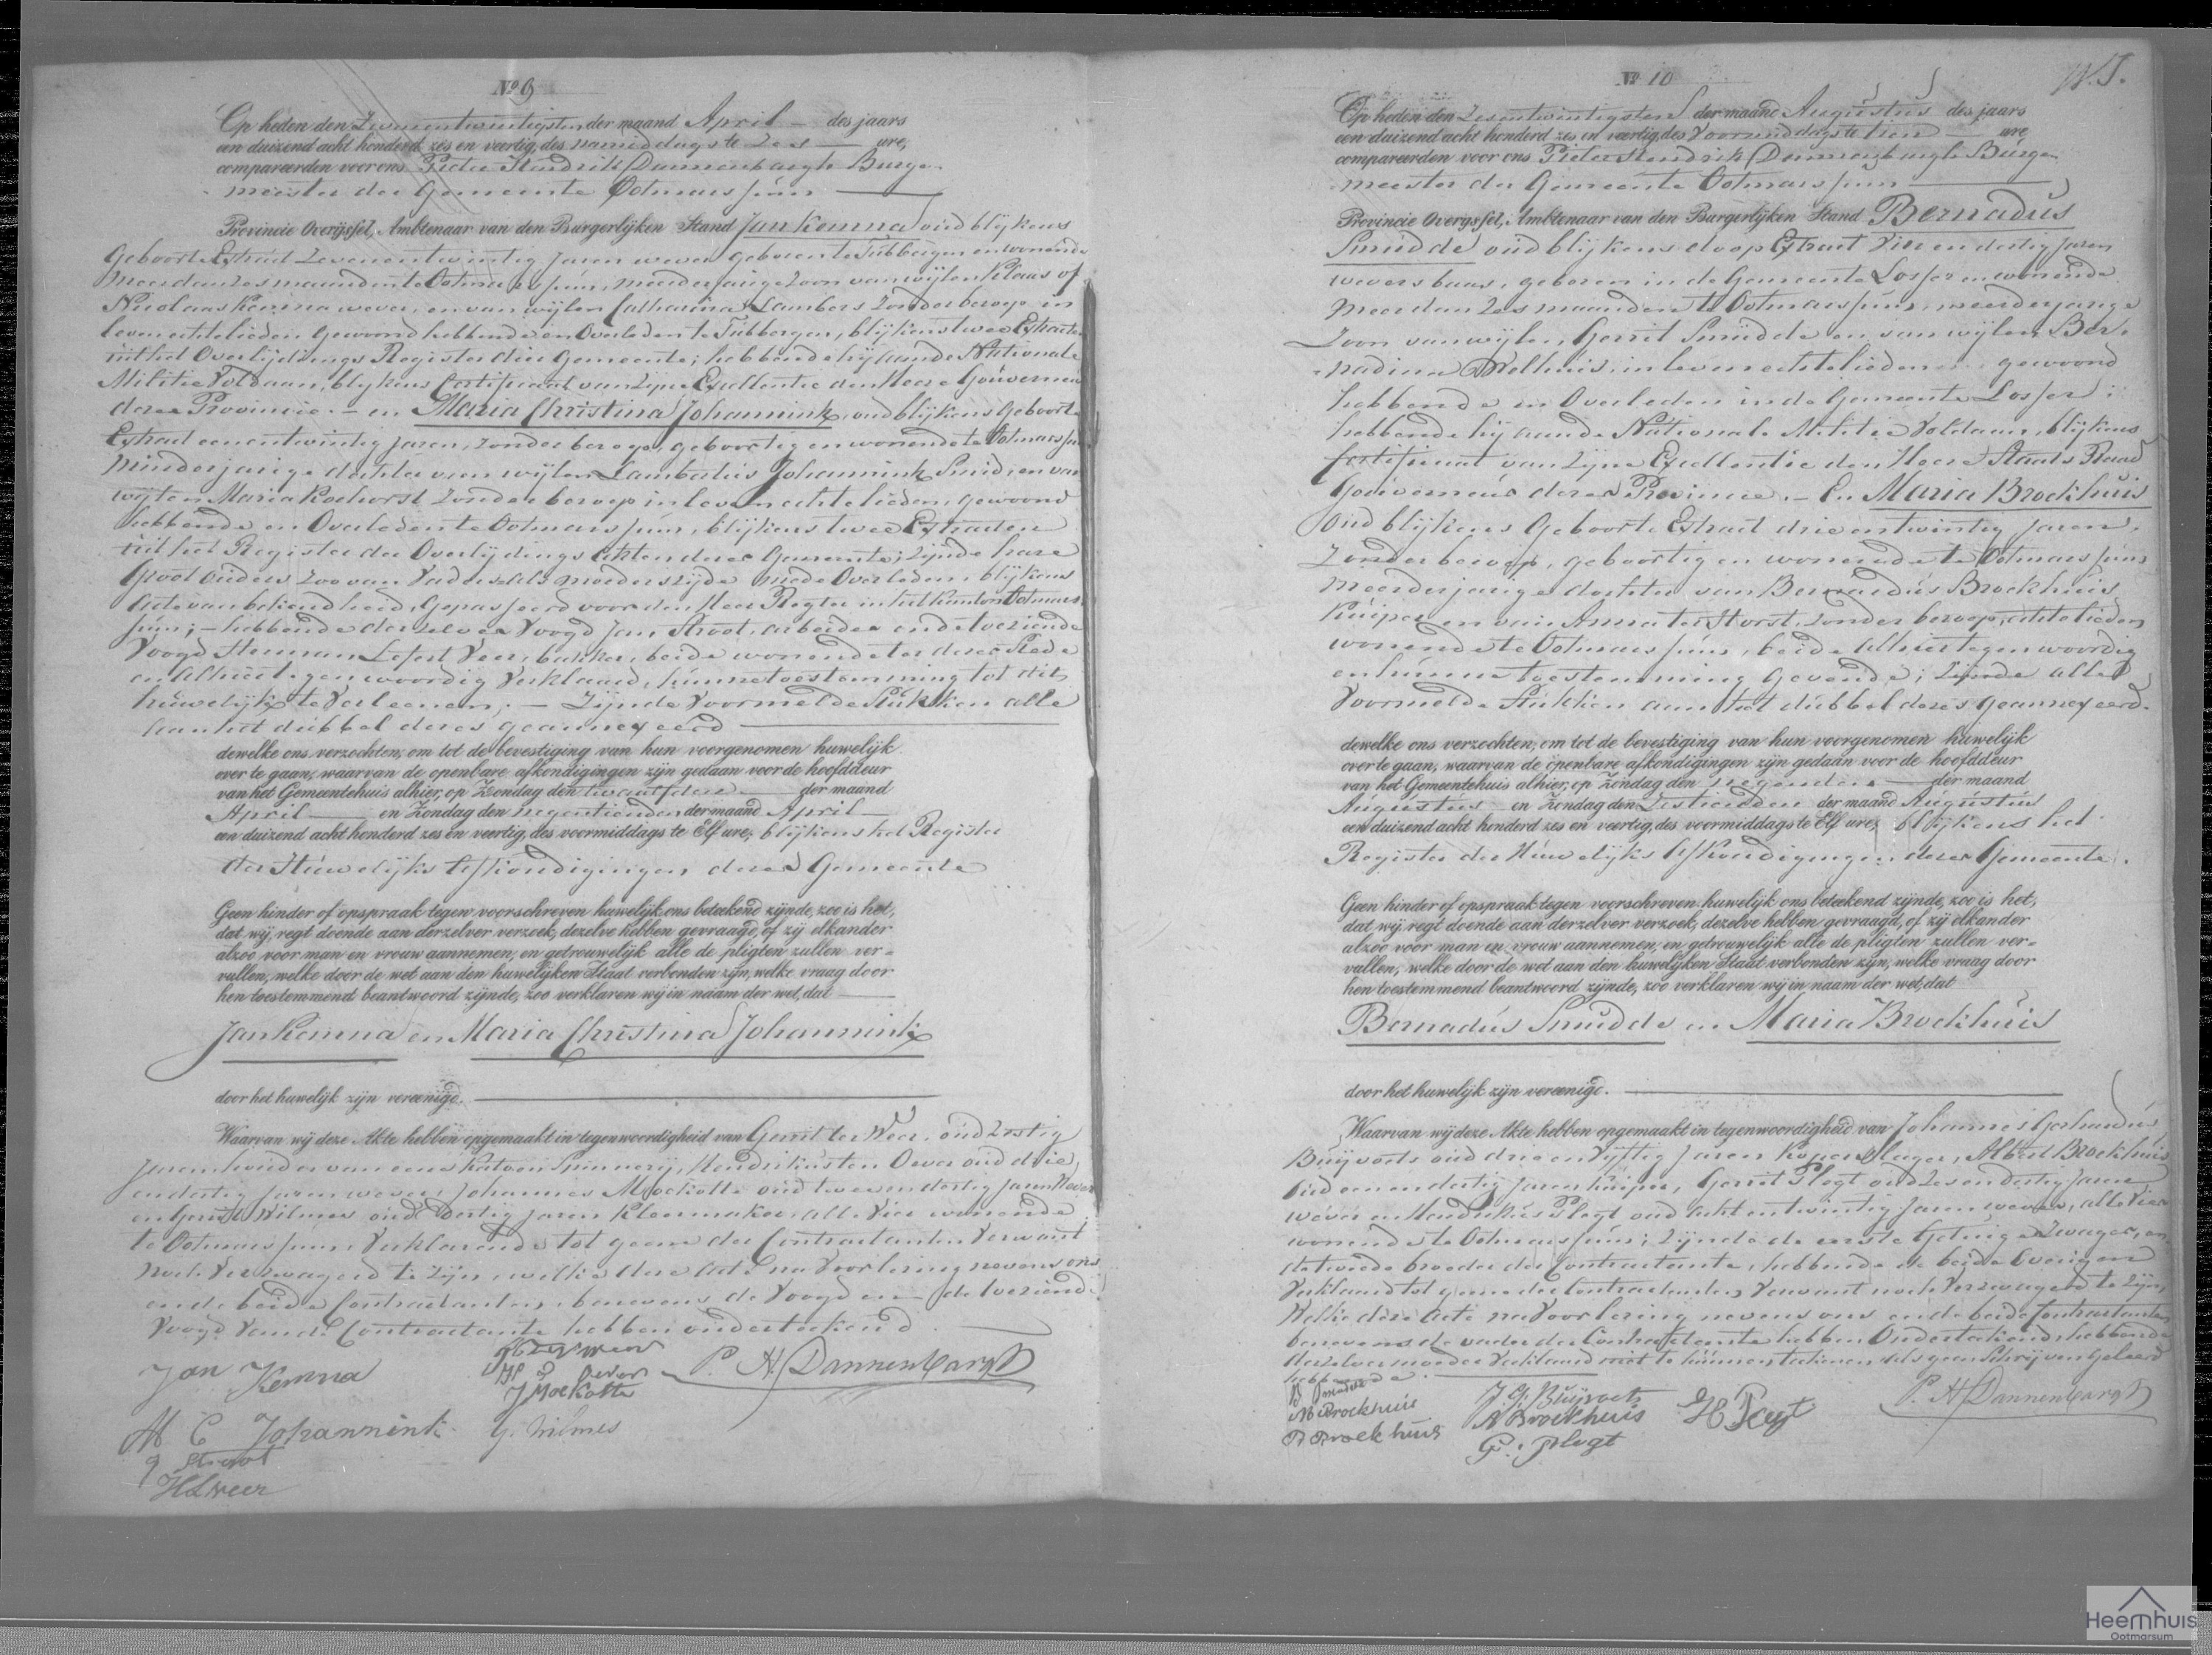 No 9
Op heden den Zevenentwintigsten der maand April des jaars
een duizend acht honderd zes en veertig, des namiddags te Zes ure,
compareerden voor ons Pieter Hendrik Dannenbargh Burge-
meester der Gemeente Ootmarssum
Provincie Overijssel, Ambtenaar van den Burgerlijken Stand Jan Kemna oud blijkens
Geboorte Extract Zevenentwintig Jaren wever geboren te Tubbergen en wonende
meer dan zes maanden te Ootmarssum, meerderjarige Zoon van wijlen Klaas of
Nicolaas Kemna wever, en van wijlen Catharina Lambers zonder beroep in
leven echtelieden gewoond hebbende en Overleden te Tubbergen, blijkens twee Extracten
uit het Overlijdings Register dier Gemeente; hebbende hij aan de Nationale
Militie Voldaan, blijkens Certificaat van Zijne Excellentie den Heere Gouverneur
dezer Provincie. – en Maria Christina Johannink, oud blijkens Geboorte
Extract eenentwintig jaren, zonder beroep, geboortig en wonende te Ootmarssum
Minderjarige dochter van wijlen Lambertus Johannink Smid, en van
wijlen Maria Koehorst zonder beroep in leven echtelieden, gewoond
hebbende en Overleden te Ootmarssum, blijkens twee Extracten
uit het Register der Overlijdings Akten dezer Gemeente; zijnde hare
Groot ouders zoo van Vaders als moederszijde mede Overleden, blijkens
Acte van bekendheid, Gepasseerd voor den Heer Regter in het kanton Ootmars-
sum; – hebbende derzelver Voogd Jan Stroot, arbeider en de toeziende
Voogd Herman Lefert Veer, bakker, beide wonende ter dezer Stede
en Alhier tegenwoordig Verklaard, hunne toestemming tot dit
huwelijk te Verleenen; – Zijnde Voormelde Stukken alle
aan het dubbel dezes geannexeerd
dewelke ons verzochten, om tot de bevestiging van hun voorgenomen huwelijk
over te gaan, waarvan de openbare afkondigingen zijn gedaan voor de hoofddeur
van het Gemeentehuis alhier, op Zondag den twaalfden der maand
April en Zondag den negentienden der maand April
een duizend acht honderd zes en veertig, des voormiddags te Elf ure, blijkens het Register
der Huwelijks Afkondigingen dezer Gemeente
Geen hinder of opspraak tegen voorschreven huwelijk ons beteekend zijnde, zoo is het,
dat wij, regt doende aan derzelver verzoek, dezelve hebben gevraagd, of zij elkander
alzoo voor man en vrouw aannemen, en getrouwelijk alle de pligten zullen ver-
vullen, welke door de wet aan den huwelijken Staat verbonden zijn, welke vraag door
hen toestemmend beantwoord zijnde, zoo verklaren wij in naam der wet, dat
Jan Kemna en Maria Christina Johannink
door het huwelijk zijn vereenigd.
Waarvan wij deze Akte hebben opgemaakt in tegenwoordigheid van Gerrit ter Weer, oud zestig
Jaren houder van eene Katoen Spinnerij, Hendrikus ten Oever oud drie
en dertig Jaren wever, Johannes Moekotte oud twee en dertig Jaren Wever
en Gerrit Hilmes oud dertig jaren kleermaker, alle vier wonende
te Ootmarssum, Verklarende tot geene der Contractanten Verwant
noch Verzwagerd te zijn, welke deze Acte na Voorlezing nevens ons
en de beide Contractanten, benevens de Voogd en de toeziende
Voogd van de Contractante hebben onderteekend
Jan Kemna
H T Oever
J Moekotte
P. H. Dannenbargh
M C Johannink
G. Hilmes
J Stroot
H L Veer
No 10
Op heden den Zesentwintigsten der maand Augustus des jaars
een duizend acht honderd zes en veertig, des Voormiddags te tien ure
compareerden voor ons Pieter Hendrik Dannenbargh Burge-
meester der Gemeente Ootmarssum
Provincie Overijssel, Ambtenaar van den Burgerlijken Stand Bernadus
Smudde oud blijkens doop Extract Vier en dertig Jaren
wevers baas, geboren in de Gemeente Losser en wonende
meer dan zes maanden te Ootmarssum, meerderjarige
Zoon van wijlen Gerrit Smudde en van wijlen Ber-
nadina Welhuis, in leven echtelieden gewoond
hebbende en Overleden in de Gemeente Losser;
hebbende hij aan de Nationale Militie Voldaan, blijkens
Certificaat van Zijne Excellentie den Heere Staats Raad
Gouverneur dezer Provincie. – En Maria Broekhuis
Oud blijkens Geboorte Extract drieentwintig Jaren,
Zonder beroep, geboortig en wonende te Ootmarssum
Meerderjarige dochter van Bernardus Broekhuis
Kuiper en van Anna ter Horst, zonder beroep, echtelieden
wonende te Ootmarssum, beide Alhier tegenwoordig
en hunne toestemming Gevende; zijnde alle
Voormelde Stukken aan het dubbel dezes geannexeerd.
dewelke ons verzochten, om tot de bevestiging van hun voorgenomen huwelijk
over te gaan, waarvan de openbare afkondigingen zijn gedaan voor de hoofddeur
van het Gemeentehuis alhier, op Zondag den negenden der maand
Augustus en Zondag den Zestienden der maand Augustus
een duizend acht honderd zes en veertig, des voormiddags te Elf ure, blijkens het
Register der Huwelijks Afkondigingen dezer Gemeente.
Geen hinder of opspraak tegen voorschreven huwelijk ons beteekend zijnde, zoo is het,
dat wij, regt doende aan derzelver verzoek, dezelve hebben gevraagd, of zij elkander
alzoo voor man en vrouw aannemen, en getrouwelijk alle de pligten zullen ver-
vullen, welke door de wet aan den huwelijken Staat verbonden zijn, welke vraag door
hen toestemmend beantwoord zijnde, zoo verklaren wij in naam der wet, dat
Bernadus Smudde en Maria Broekhuis
door het huwelijk zijn vereenigd.
Waarvan wij deze Akte hebben opgemaakt in tegenwoordigheid van Johannes Gerhardus
Buijvoets oud drie en Vijftig Jaren koperslager, Albert Broekhuis
Oud eenendertig Jaren kuiper, Gerrit Plegt oud Zesendertig Jaren
wever en Hendrikus Plegt oud acht entwintig Jaren wever, alle Vier
wonende te Ootmarssum; Zijnde de eerste Getuige Zwager, en
de tweede broeder der Contractante, hebbende de beide Overigen
Verklaard tot geene der Contractanten Verwant noch Verzwagerd te Zijn,
Welke deze Acte na Voorlezing nevens ons en de beide Contractanten
benevens de vader der Contractante hebben Onderteekend, hebbende
derzelver moeder Verklaard niet te kunnen teekenen als geen Schrijven Geleerd
hebbende.
B Smudde
M Broekhuis
B Broekhuis
J. G. Buijvoets
A Broekhuis
G. Plegt
H Plegt
P. H. Dannenbargh
Heemhuis
Ootmarsum